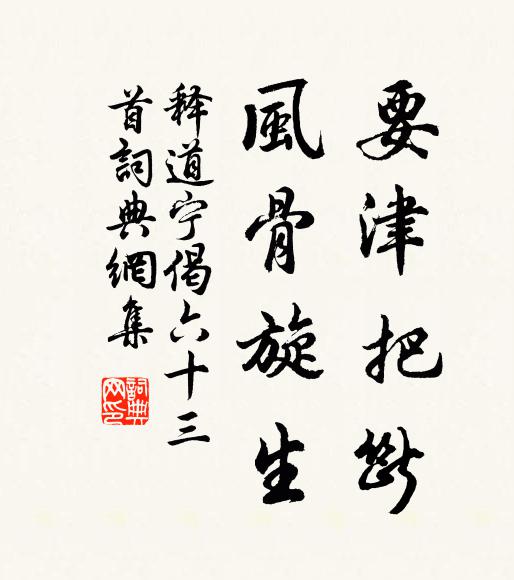 要津把斷
風骨旋生
释道宁偈六十三
首詞典網集
詞典网印